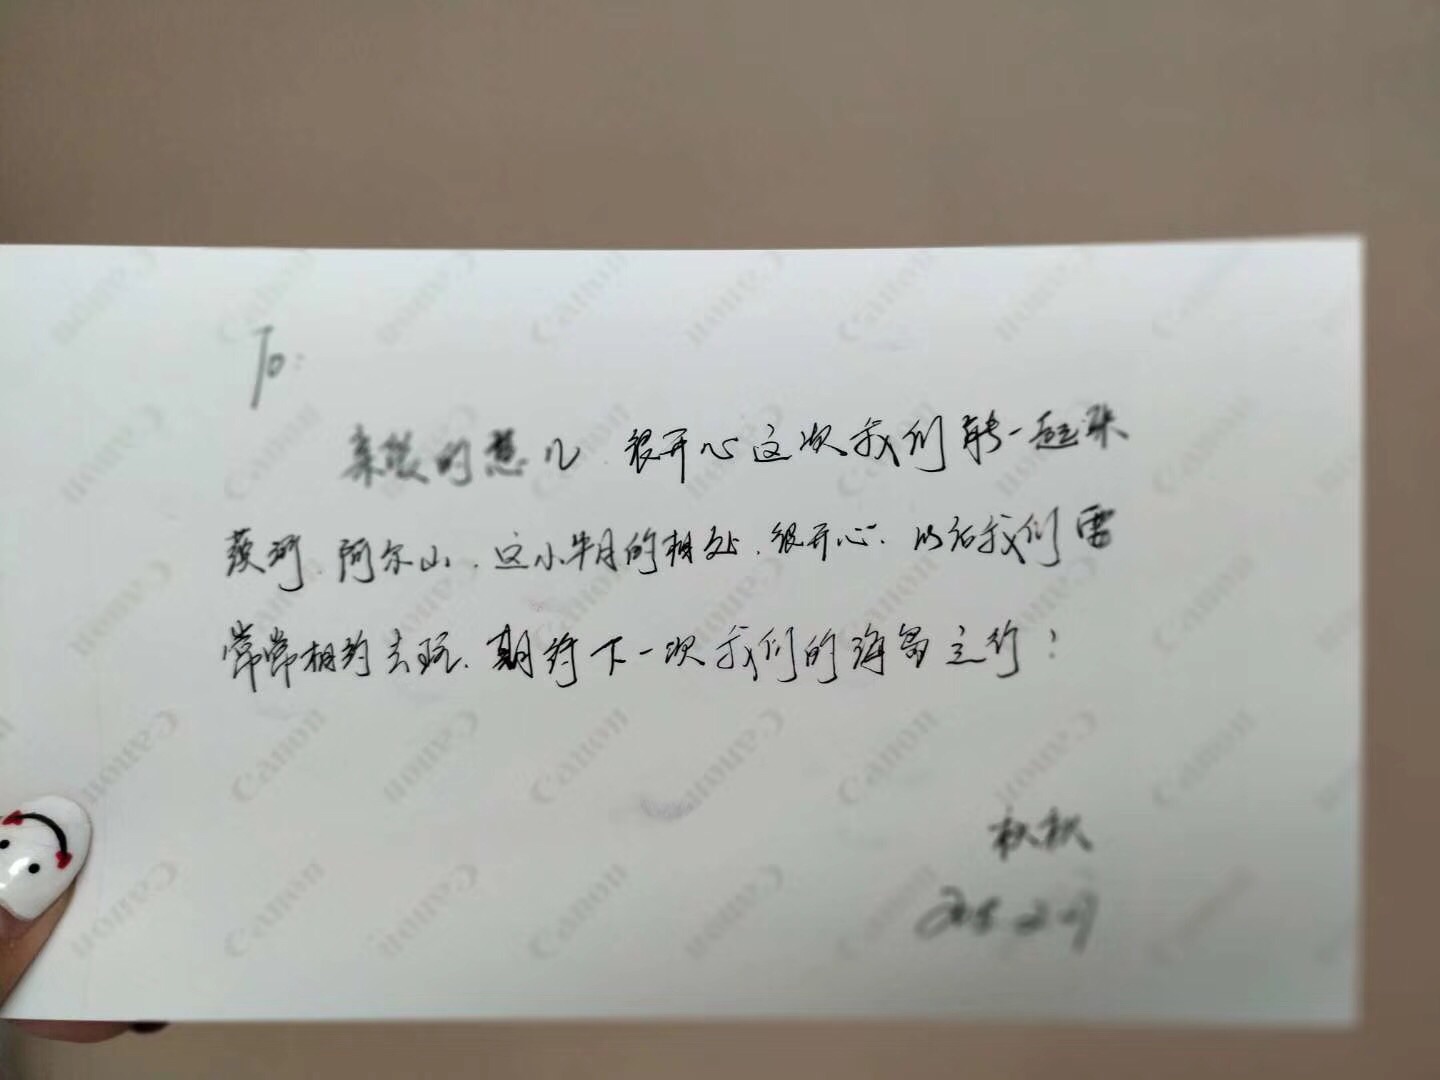 To:
亲爱的慧儿、很开心这次我们能一起来
漠河、阿尔山、这小半月的相处、很开心、以后我们需
常常相约去玩、期待下一次我们的海岛之行!
秋秋